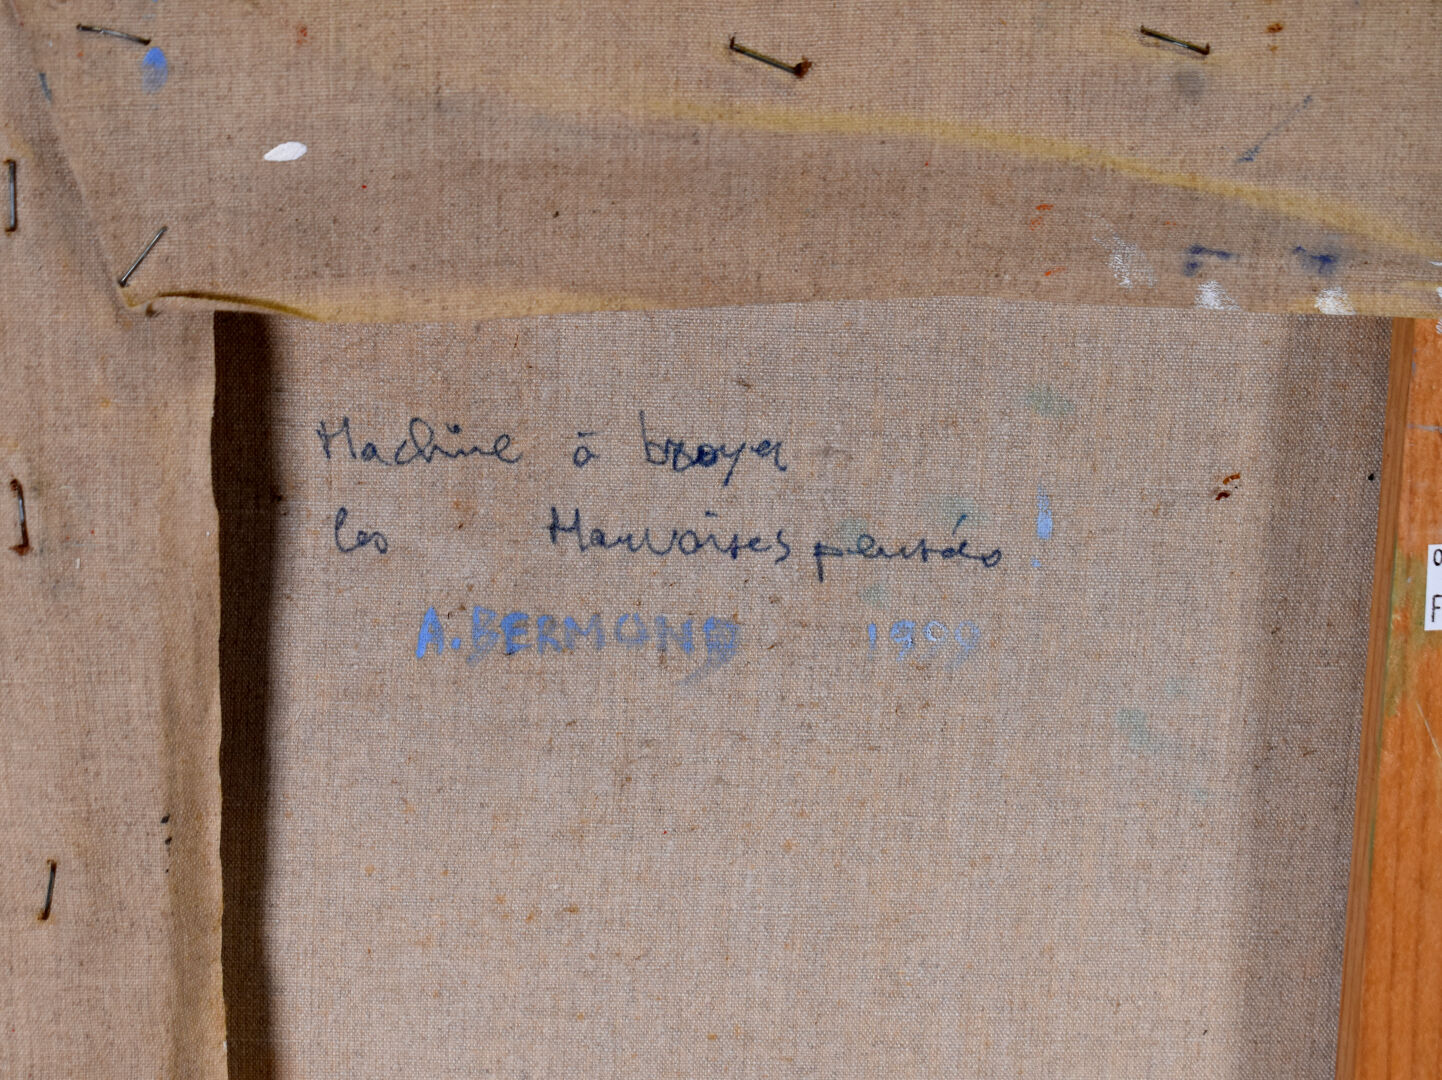 Machine à broyer
les Mauvaises pensées !
A. BERMOND 1999
0
F